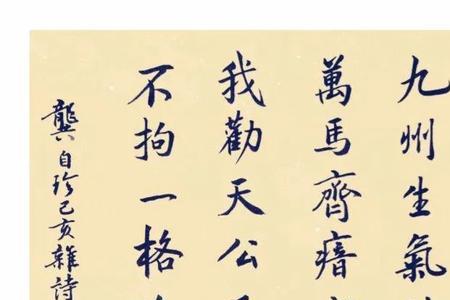 九州生氣
萬馬齊瘖
我勸天公
不拘一格
龔自珍己亥雜詩